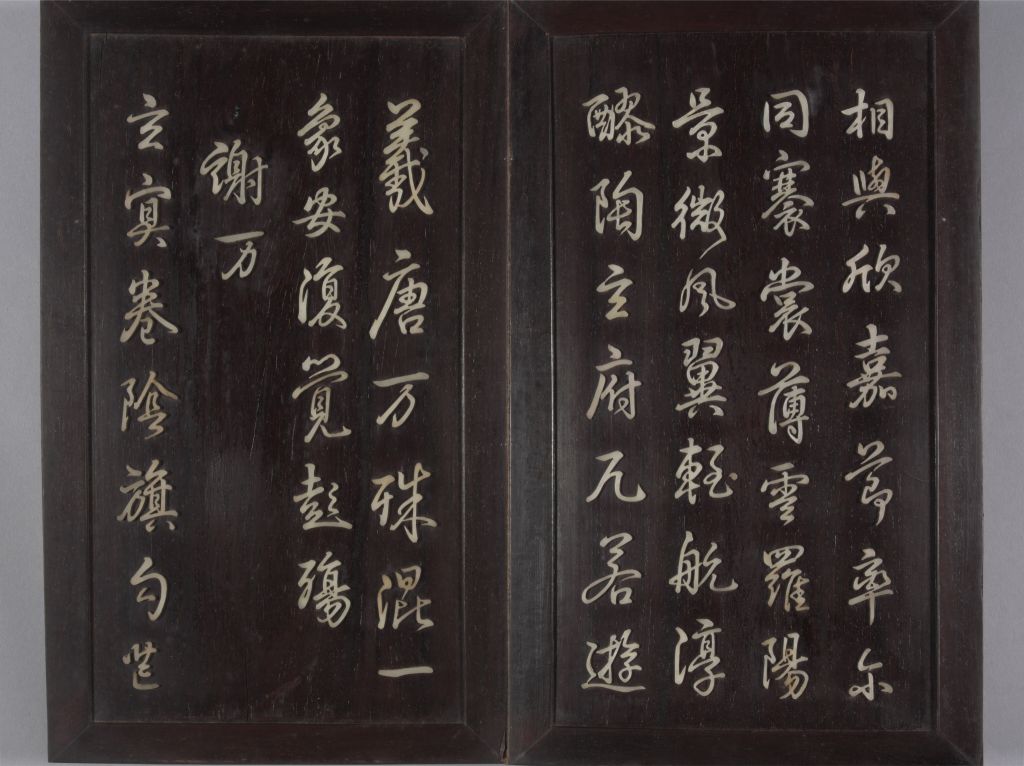 相與欣嘉節率尓
同褰裳薄雲羅陽
景微風翼輕航淳
醪陶玄府兀若遊
羲唐万殊混一
象安復覺彭殤
謝万
玄冥卷陰旗勾芒